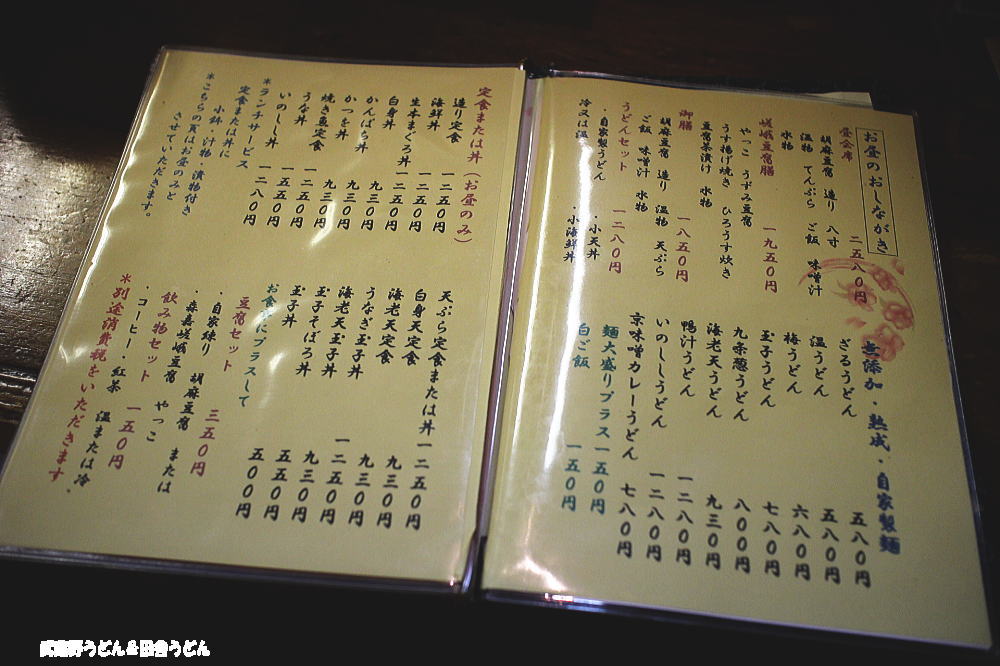 お昼のおしながき
昼会席 二五八〇円
胡麻豆腐 造り 八寸
温物 てんぷら ご飯 味噌汁
水物
嵯峨豆腐膳 一九五〇円
やっこ うずみ豆腐
うす揚げ焼き ひろうす炊き
豆腐茶漬け 水物
御膳 一八五〇円
胡麻豆腐 造り 温物 天ぷら
ご飯 味噌汁 水物
うどんセット 一二八〇円
・自家製うどん ・小天丼
冷又は温 ・小海鮮丼
無添加・熟成・自家製麺
ざるうどん 五八〇円
温うどん 五八〇円
梅うどん 六八〇円
玉子うどん 七八〇円
九条葱うどん 八〇〇円
海老天うどん 九三〇円
鴨汁うどん 一二八〇円
いのししうどん 一二八〇円
京味噌カレーうどん 七八〇円
麺大盛りプラス 一五〇円
白ご飯 一五〇円
定食または丼(お昼のみ)
造り定食 一二五〇円
海鮮丼 一二五〇円
生本まぐろ丼 一二五〇円
白身丼 九三〇円
かんぱち丼 九三〇円
かつを丼 九三〇円
焼き魚定食 九三〇円
うな丼 一二五〇円
いのしし丼 一五五〇円
*ランチサービス 一二八〇円
定食または丼に
小鉢・汁物・漬物付き
*こちらの頁はお昼のみと
させていただきます。
天ぷら定食または丼 一二五〇円
白身天定食 九三〇円
海老天定食 九三〇円
うなぎ玉子丼 一二五〇円
海老天玉子丼 九三〇円
玉子そぼろ丼 五五〇円
玉子丼 五〇〇円
お食事にプラスして
豆腐セット 三五〇円
・自家練り 胡麻豆腐 または
・森嘉嵯峨豆腐 やっこ
飲み物セット 一五〇円
・コーヒー・紅茶 温または冷、
*別途消費税をいただきます
武蔵野うどん&田舎うどん